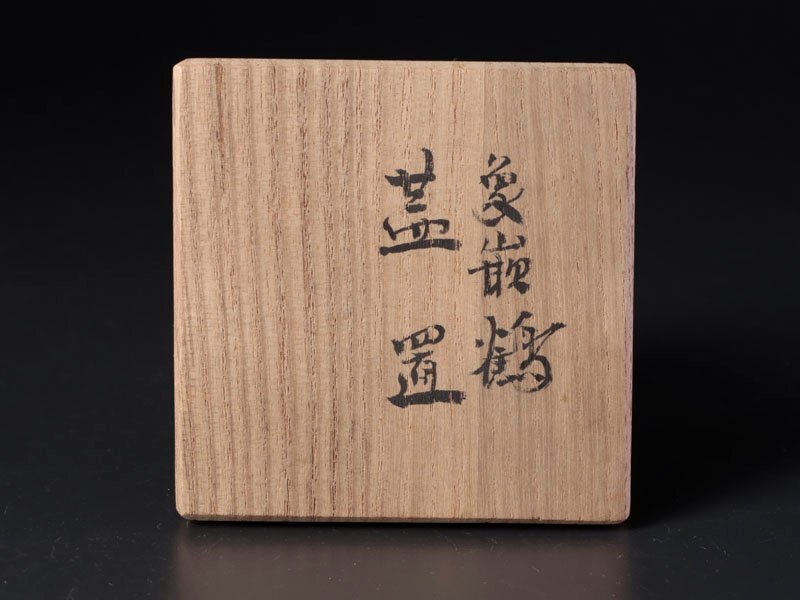 象嵌鶴
蓋置